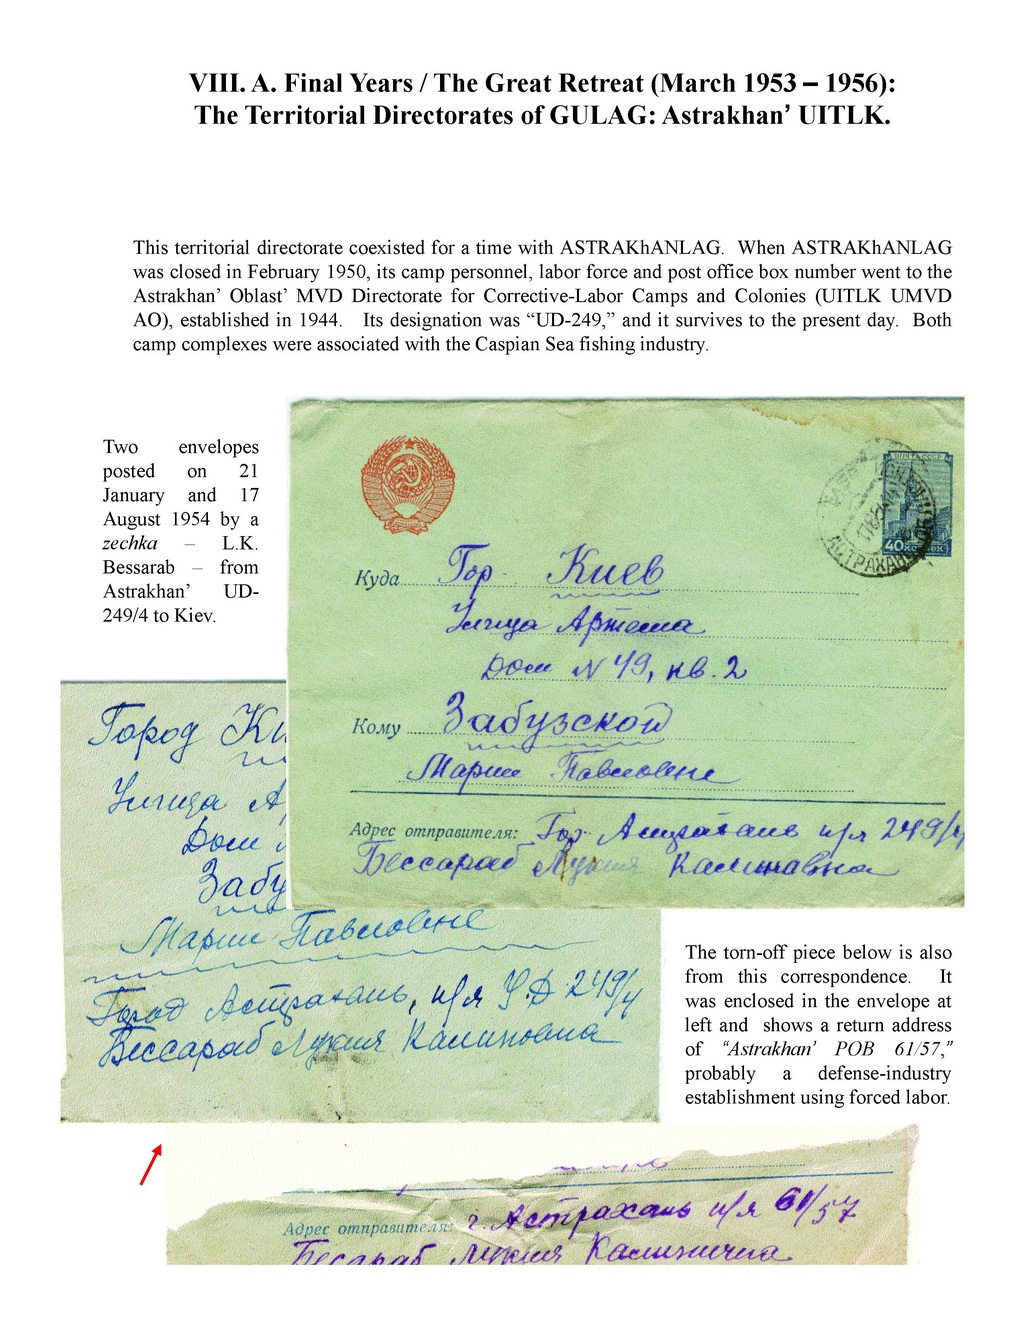 VIII. A. Final Years / The Great Retreat (March 1953 – 1956):
The Territorial Directorates of GULAG: Astrakhan’ UITLK.
This territorial directorate coexisted for a time with ASTRAKhANLAG. When ASTRAKhANLAG
was closed in February 1950, its camp personnel, labor force and post office box number went to the
Astrakhan’ Oblast’ MVD Directorate for Corrective-Labor Camps and Colonies (UITLK UMVD
AO), established in 1944. Its designation was “UD-249,” and it survives to the present day. Both
camp complexes were associated with the Caspian Sea fishing industry.
Two envelopes
posted on 21
January and 17
August 1954 by a
zechka – L.K.
Bessarab – from
Astrakhan’ UD-
249/4 to Kiev.
ПОЧТА СССР
40 КОПЕЕК
АСТРАХАНЬ
Куда Гор. Киев
Улица Артема
Дом N 49, кв. 2
Кому Забузской
Марии Павловне
Адрес отправителя: Гор. Астрахань п/я 249/4
Бессараб Лукия Калинавна
Город Ки
Улица А
Дом
Забу
Марии Павловне
Город Астрахань, п/я У.Д 249/4
Бессараб Лукия Калиновна
The torn-off piece below is also
from this correspondence. It
was enclosed in the envelope at
left and shows a return address
of “Astrakhan’ POB 61/57,”
probably a defense-industry
establishment using forced labor.
Адрес отправителя: г. Астрахань п/я 61/57
Бесараб Лукия Калинична